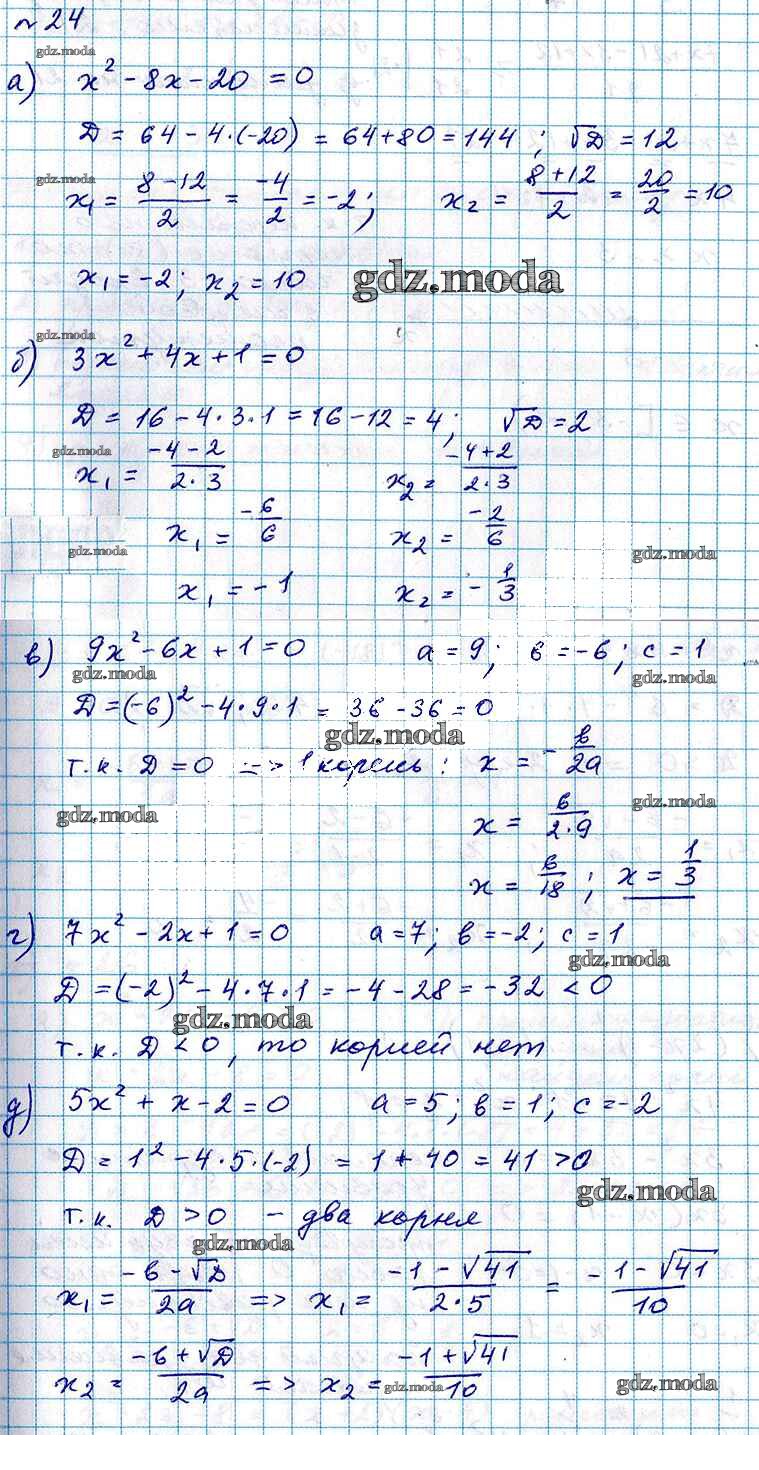 № 24
gdz.moda
а) x² - 8x - 20 = 0
D = 64 - 4·(-20) = 64 + 80 = 144 ; √D = 12
gdz.moda
x₁ = (8 - 12)/2 = -4/2 = -2; x₂ = (8 + 12)/2 = 20/2 = 10
x₁ = -2; x₂ = 10 gdz.moda
gdz.moda
б) 3x² + 4x + 1 = 0
D = 16 - 4·3·1 = 16 - 12 = 4; √D = 2
gdz.moda
x₁ = (-4 - 2)/(2·3) x₂ = (-4 + 2)/(2·3)
x₁ = -6/6 x₂ = -2/6
gdz.moda gdz.moda
x₁ = -1 x₂ = -1/3
в) 9x² - 6x + 1 = 0 a = 9; в = -6; c = 1
gdz.moda gdz.moda
D = (-6)² - 4·9·1 = 36 - 36 = 0
gdz.moda
т.к. D = 0 => 1 корень: x = -в/2a
gdz.moda gdz.moda
x = 6/(2·9)
x = 6/18 ; x = 1/3
г) 7x² - 2x + 1 = 0 a = 7; в = -2; c = 1
gdz.moda
D = (-2)² - 4·7·1 = -4 - 28 = -32 < 0
gdz.moda
т.к. D < 0, то корней нет
д) 5x² + x - 2 = 0 a = 5; в = 1; c = -2
D = 1² - 4·5·(-2) = 1 + 40 = 41 > 0
gdz.moda
т.к. D > 0 - два корня
gdz.moda
x₁ = (-в - √D)/2a => x₁ = (-1 - √41)/(2·5) = (-1 - √41)/10
x₂ = (-в + √D)/2a => x₂ = (-1 + √41)/10
gdz.moda gdz.moda